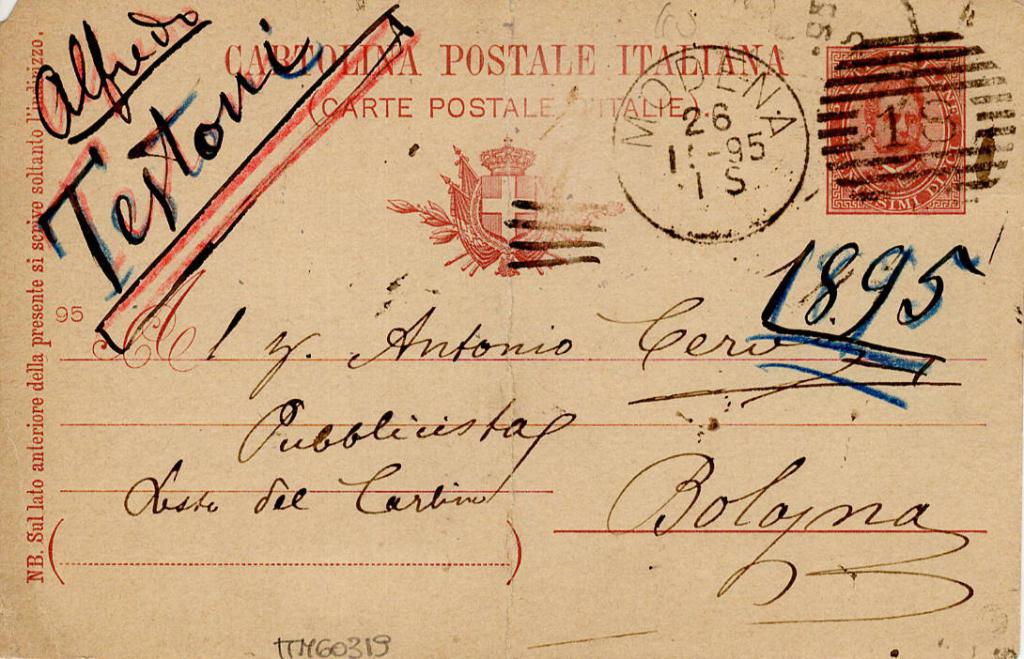 Alfredo
Testoni
CARTOLINA POSTALE ITALIANA
(CARTE POSTALE D'ITALIE)
MODENA
26
11-95
1 S
18
1895
95
Al Sig. Antonio Cervi
Pubblicista
Resto del Carlino
Bologna
NB. Sul lato anteriore della presente si scrive soltanto l'indirizzo.
TTM60319